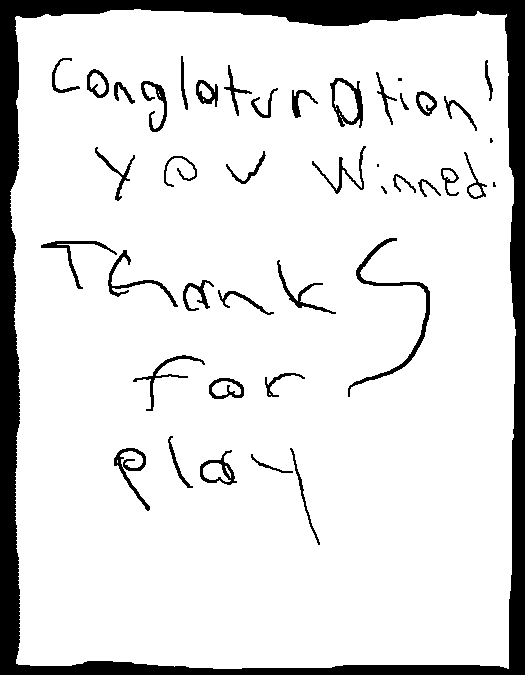 Conglaturation!
you Winned.
Thanks
for
play